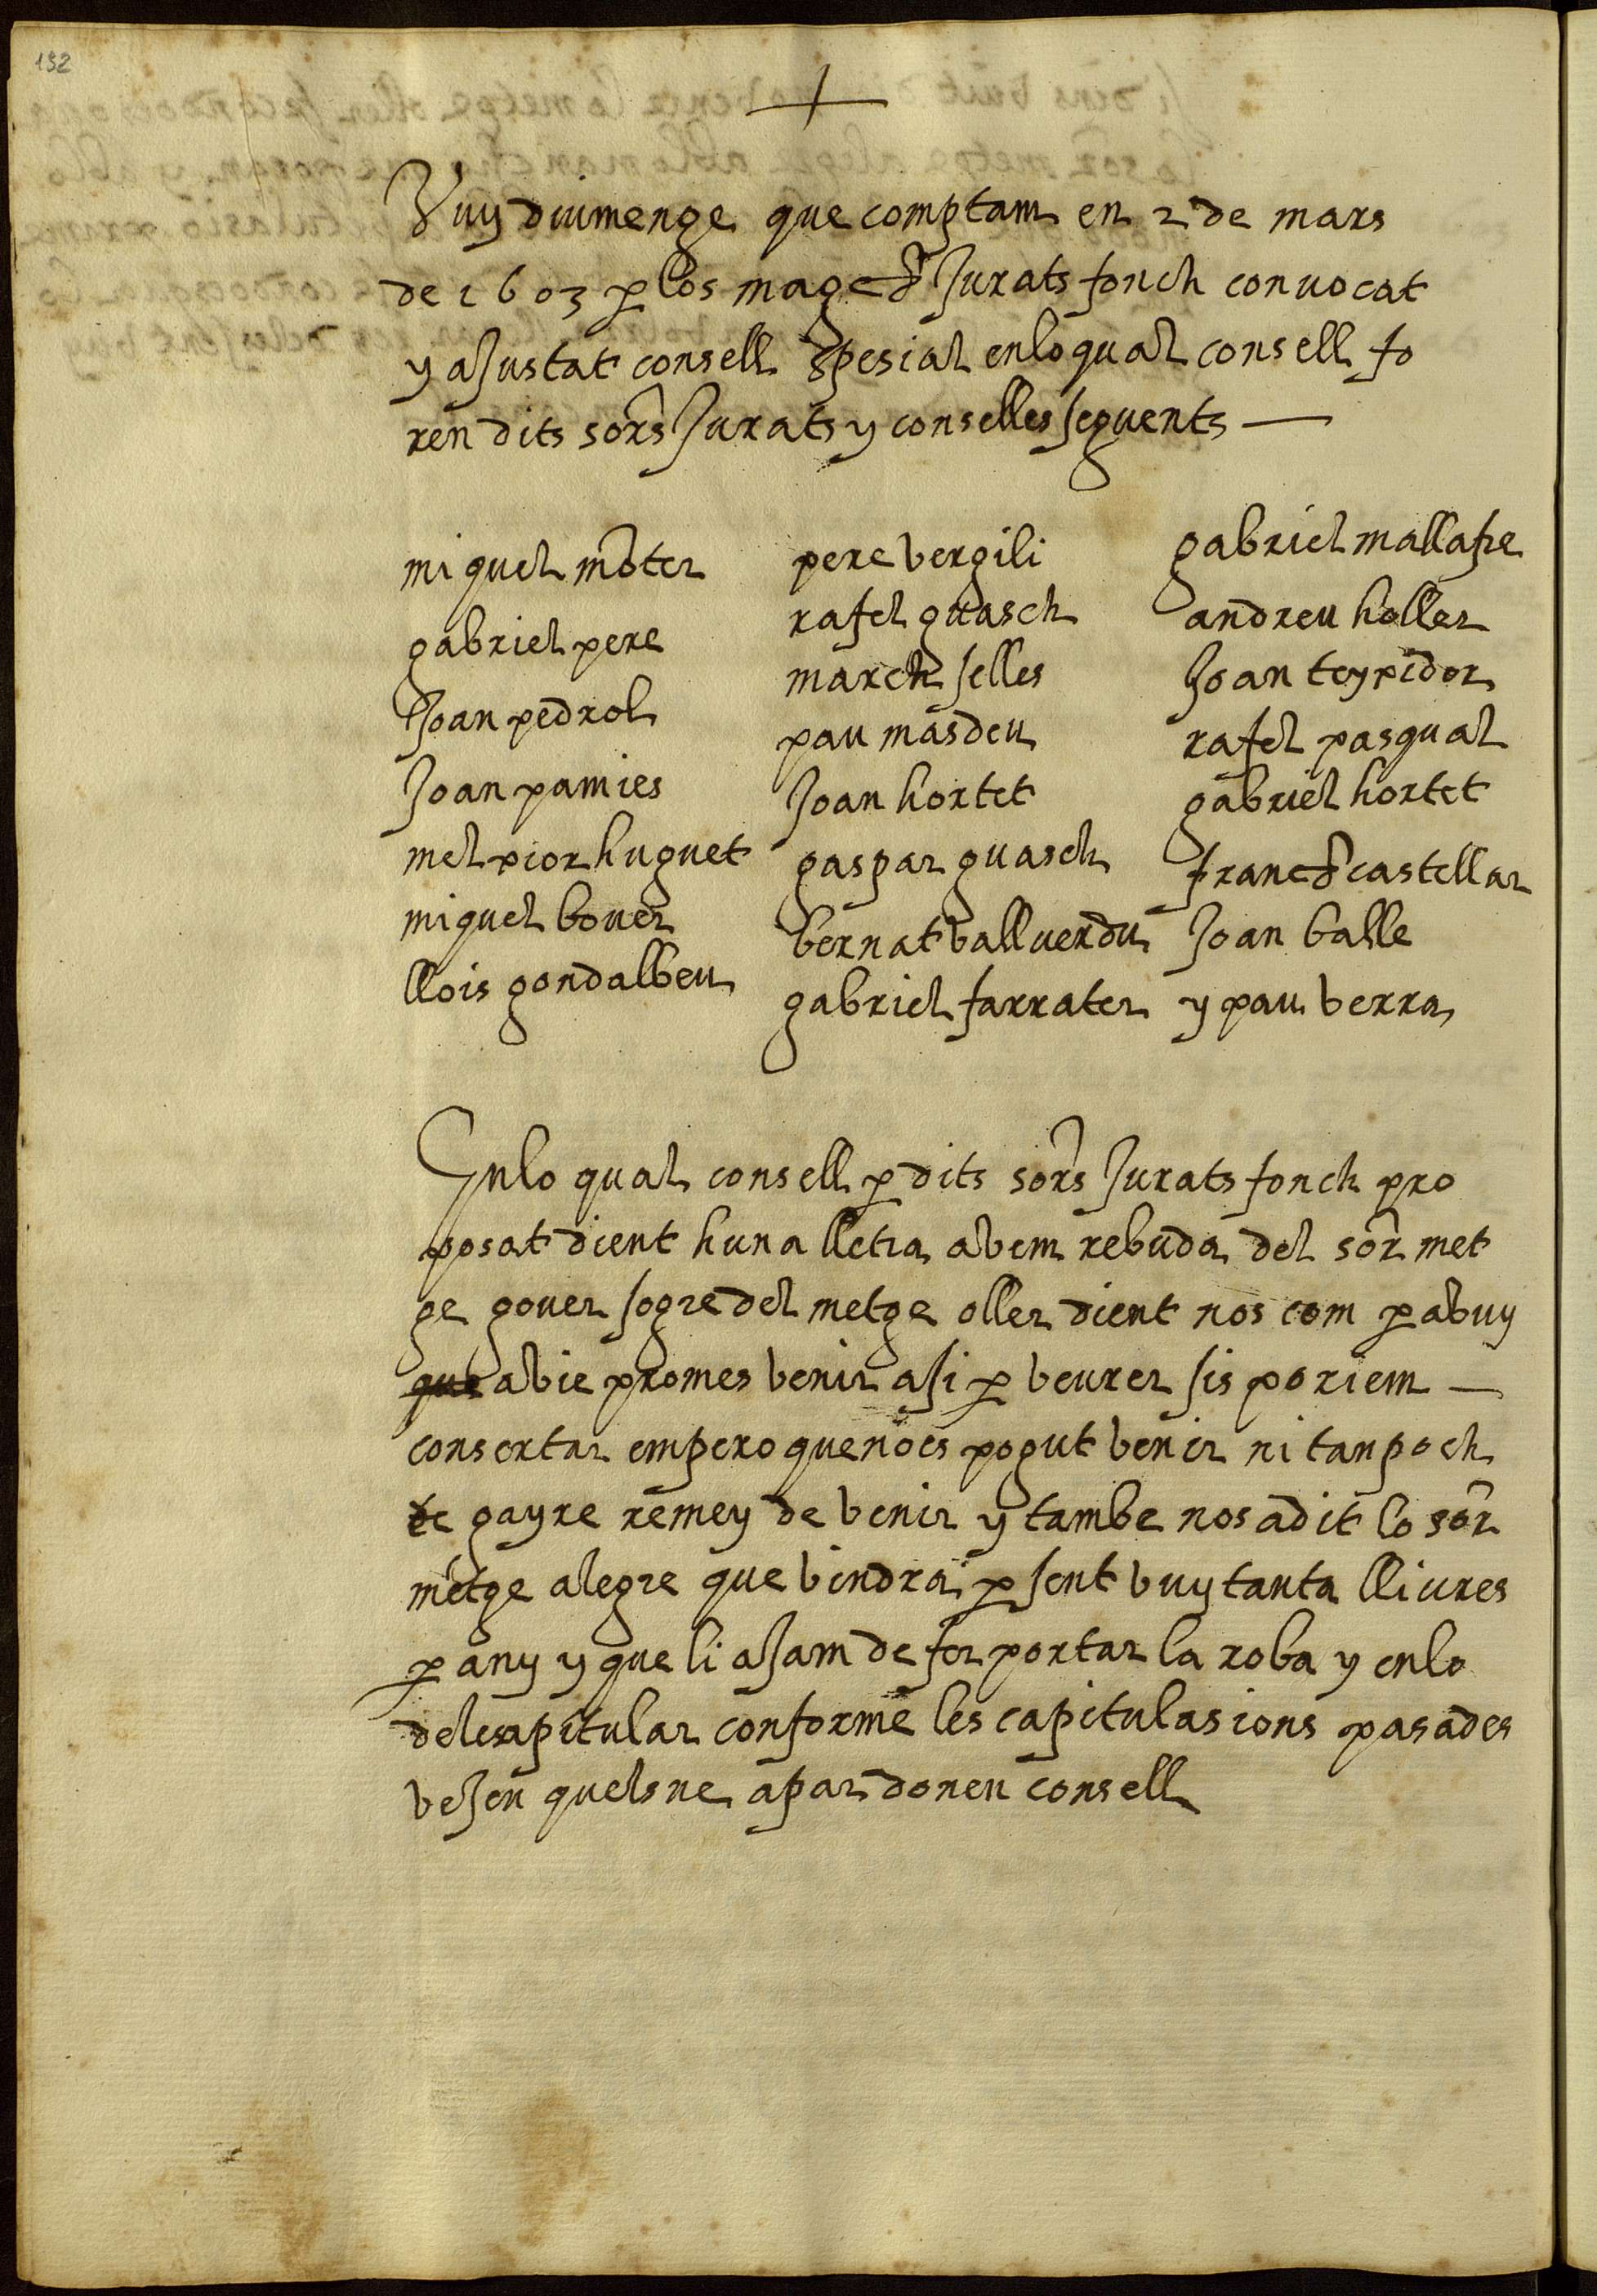 132
Vuy diumenge que comptam en 2 de mars
de 1603 p los magcs Jurats fonch conuocat
y aJustat consell spesial enloqual consell fo
ren dits sors Jurats y conselles seguents —
miquel moter
gabriel pere
Joan pedrol
Joan pamies
melxior huguet
miquel bouer
llois gondalbeu
pere vergili
rafel guasch
march selles
pau masdeu
Joan hortet
gaspar guasch
bernat vallverdu
gabriel farrater
gabriel mallafre
andreu holler
Joan teyxidor
rafel pasqual
gabriel hortet
francs castellar
Joan balle
y pau verra
Enlo qual consell p dits sors Jurats fonch pro
posat dient huna lletra abem rebuda del sor met
ge gouer sogre del metge oller dient nos com p abuy
que abie promes venir asi p veurer sis poriem —
consertar empero que noes pogut venir ni tanpoch
te gayre remey de venir y tambe nos adit lo sor
metge alegre que vindra p sent vuytanta lliures
p any y que li aJam de fer portar la roba y enlo
delcapitular conforme les capitulasions pasades
veJen quels ne apar donen consell